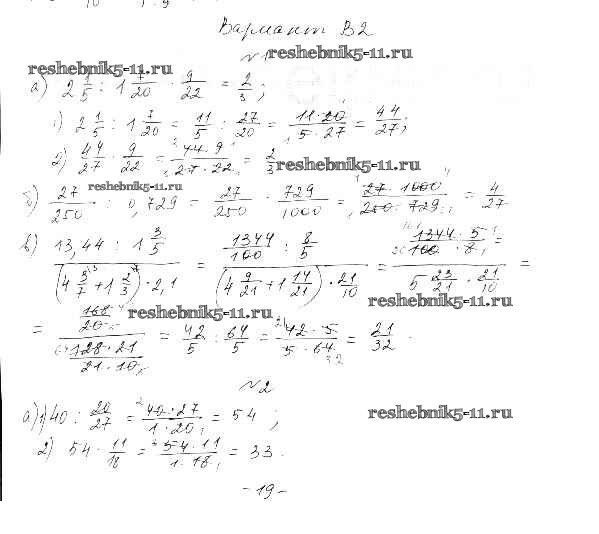 Вариант В2
№1 reshebnik5-11.ru
reshebnik5-11.ru
а) 2 1/5 : 1 7/20 · 9/22 = 2/3;
1) 2 1/5 : 1 7/20 = 11/5 : 27/20 = 11·20/5·27 = 44/27;
2) 44/27 · 9/22 = 44·9/27·22 = 2/3 reshebnik5-11.ru
reshebnik5-11.ru
б) 27/250 : 0,729 = 27/250 : 729/1000 = 27·1000/250·729 = 4/27
в) 13,44 : 1 3/5 / (4 3/7 + 1 2/3) · 2,1 = 1344/100 : 8/5 / (4 9/21 + 1 14/21) · 21/10 = 1344·5/100·8 / 5 23/21 · 21/10 =
reshebnik5-11.ru
= 168/20 / 128·21/21·10 = 42/5 : 64/5 = 42·5/5·64 = 21/32.
reshebnik5-11.ru
№2
а) 1) 40 : 20/27 = 40·27/1·20 = 54; reshebnik5-11.ru
2) 54 · 11/18 = 54·11/1·18 = 33.
-19-